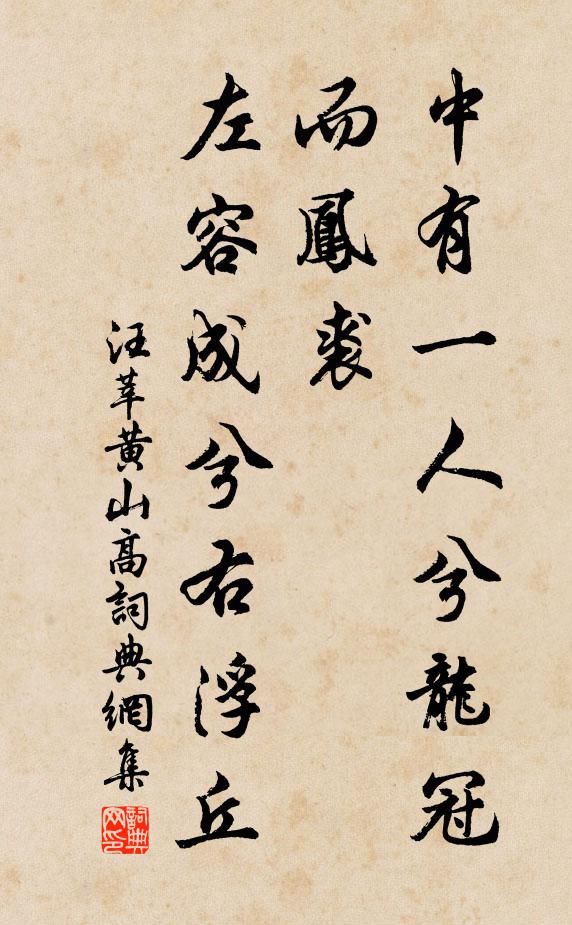 中有一人兮龍冠
而鳳裘
左容成兮右浮丘
汪莘黄山高詞典網集
詞典網印